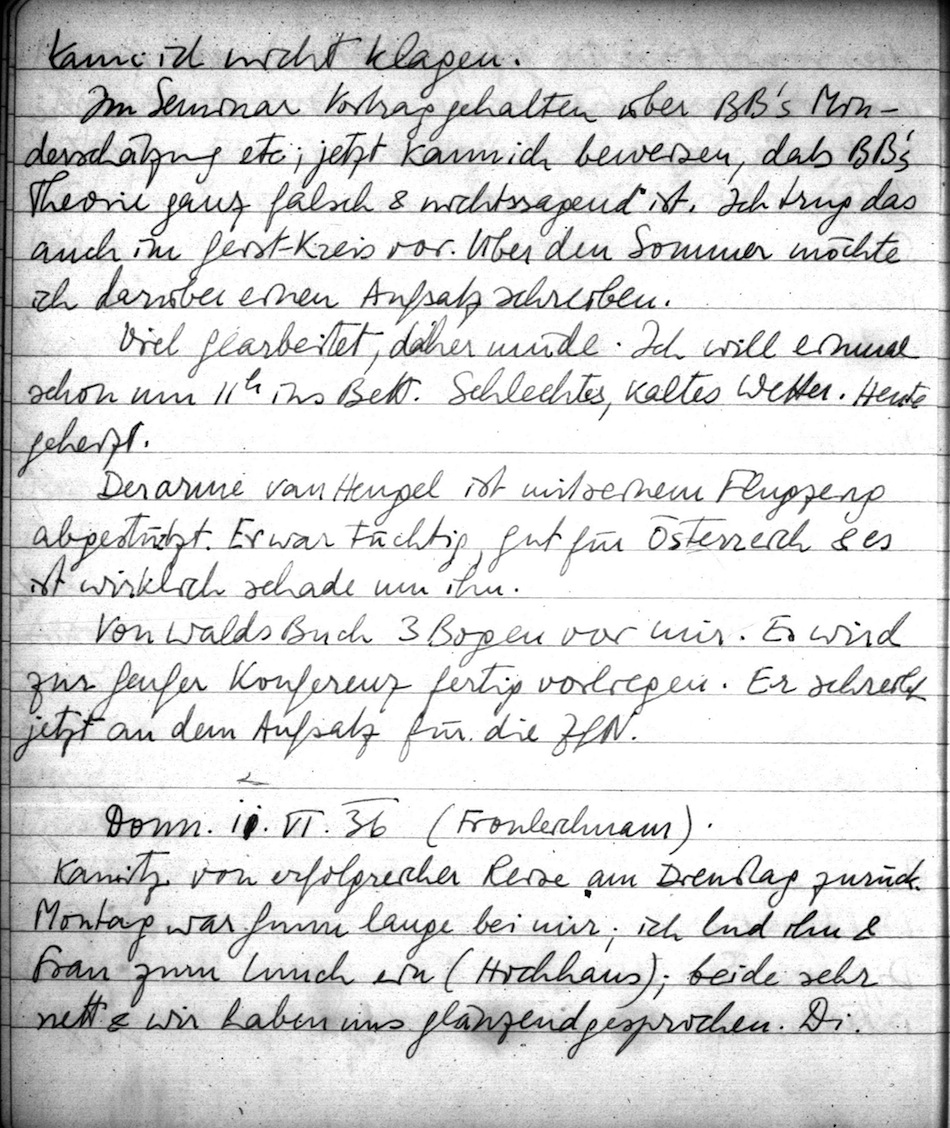 kann ich nicht klagen.
Im Seminar Vortrag gehalten über BB's Min-
derschätzung etc; jetzt kann ich beweisen, daß BB's
Theorie ganz falsch & nichtssagend ist. Ich trug das
auch im Geist-Kreis vor. Über den Sommer möchte
ich darüber einen Aufsatz schreiben.
Viel gearbeitet, daher müde. Ich will einmal
schon um 11h ins Bett. Schlechtes, kaltes Wetter. Heute
geheizt.
Der arme van Hengel ist mit seinem Flugzeug
abgestürzt. Er war tüchtig, gut für Österreich & es
ist wirklich schade um ihn.
Von Walds Buch 3 Bogen vor mir. Es wird
zur Genfer Konferenz fertig vorliegen. Er schreibt
jetzt an dem Aufsatz für die ZfN.
Donn. 11. VI. 36 (Fronleichnam).
Kamitz von erfolgreicher Reise am Dienstag zurück.
Montag war lange bei mir; ich lud ihn &
Frau zum Lunch ein (Hochhaus); beide sehr
nett & wir haben uns glänzend gesprochen. Di.